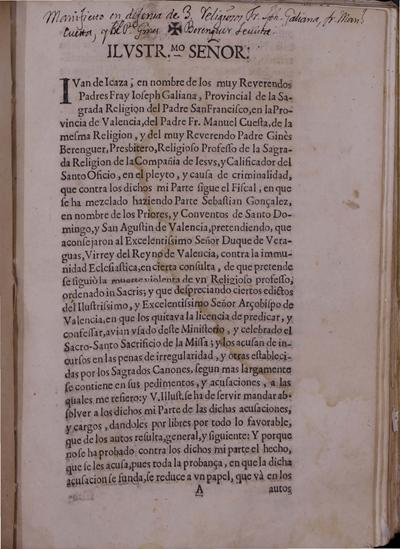 Manifiesto en defensa de 3. Religiosos Fr. Jph. Galiana, fr. Manl.
Cuesta, y el P. Gines ✠ Berenguer Jesuita
ILVSTR.MO SEÑOR:
IVan de Icaza, en nombre de los muy Reverendos
Padres Fray Ioseph Galiana, Provincial de la Sa-
grada Religion del Padre San Francisco, en la Pro-
vincia de Valencia, del Padre Fr. Manuel Cuesta, de la
mesma Religion, y del muy Reverendo Padre Ginès
Berenguer, Presbitero, Religioso Professo de la Sagra-
da Religion de la Compañia de Iesvs, y Calificador del
Santo Oficio, en el pleyto, y causa de criminalidad,
que contra los dichos mi Parte sigue el Fiscal, en que
se ha mezclado haziendo Parte Sebastian Gonçalez,
en nombre de los Priores, y Conventos de Santo Do-
mingo, y San Agustin de Valencia, pretendiendo, que
aconsejaron al Excelentissimo Señor Duque de Vera-
guas, Virrey del Reyno de Valencia, contra la immu-
nidad Eclesiastica, en cierta consulta, de que pretende
se siguiò la muerte violenta de vn Religioso professo,
ordenado in Sacris; y que despreciando ciertos edictos
del Ilustrissimo, y Excelentissimo Señor Arçobispo de
Valencia, en que los quitava la licencia de predicar, y
confessar, avian vsado deste Ministerio, y celebrado el
Sacro-Santo Sacrificio de la Missa; y los acusan de in-
cursos en las penas de irregularidad, y otras estableci-
das por los Sagrados Canones, segun mas largamente
se contiene en sus pedimentos, y acusaciones, a las
quales me refiero: y V. Illust. se ha de servir mandar ab-
solver a los dichos mi Parte de las dichas acusaciones,
y cargos, dandoles por libres por todo lo favorable,
que de los autos resulta, general, y siguiente: Y porque
no se ha probado contra los dichos mi parte el hecho,
que se les acusa, pues toda la probança, en que la dicha
acusacion se funda, se reduce a vn papel, que và en los
A autos